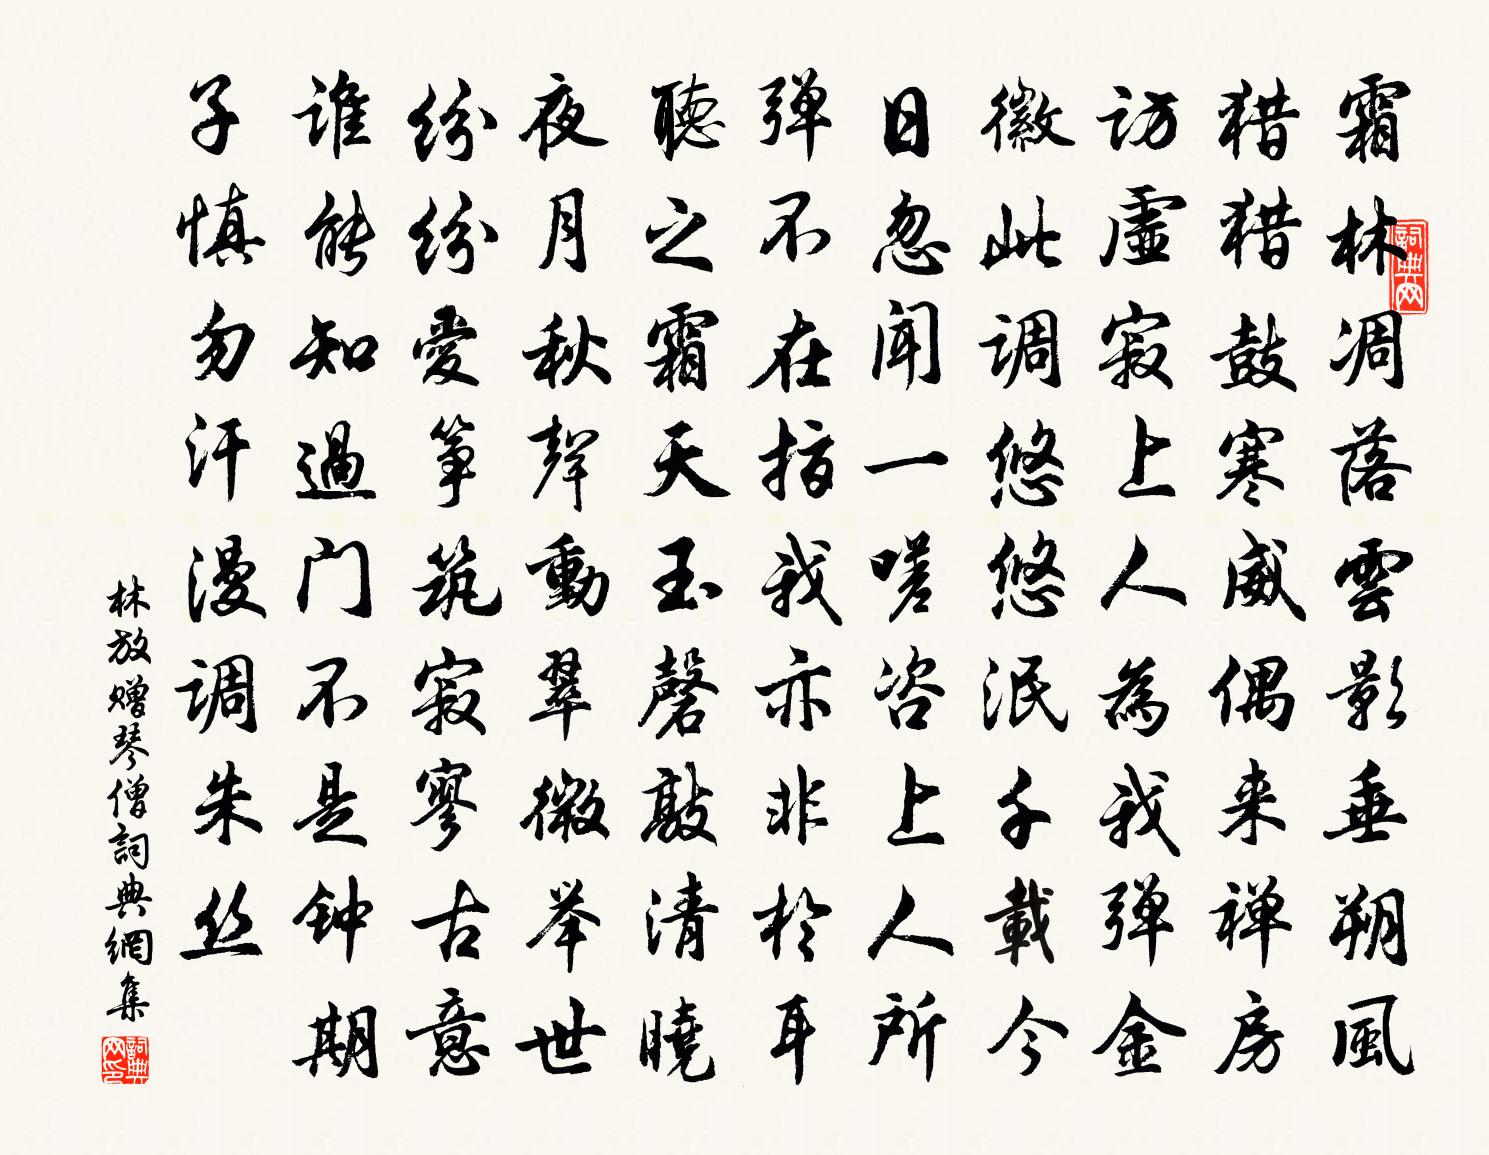 霜林凋落雲影垂朔風
猎猎鼓寒威偶来禅房
访虚寂上人為我弹金
徽此调悠悠泯千載今
日忽闻一嗟咨上人所
弹不在指我亦非於耳
聽之霜天玉磬敲清曉
夜月秋聲動翠微举世
纷纷愛筝筑寂寥古意
谁能知過门不是钟期
子慎勿汗漫调朱丝
林放赠琴僧詞典網集
詞典网
詞典网印